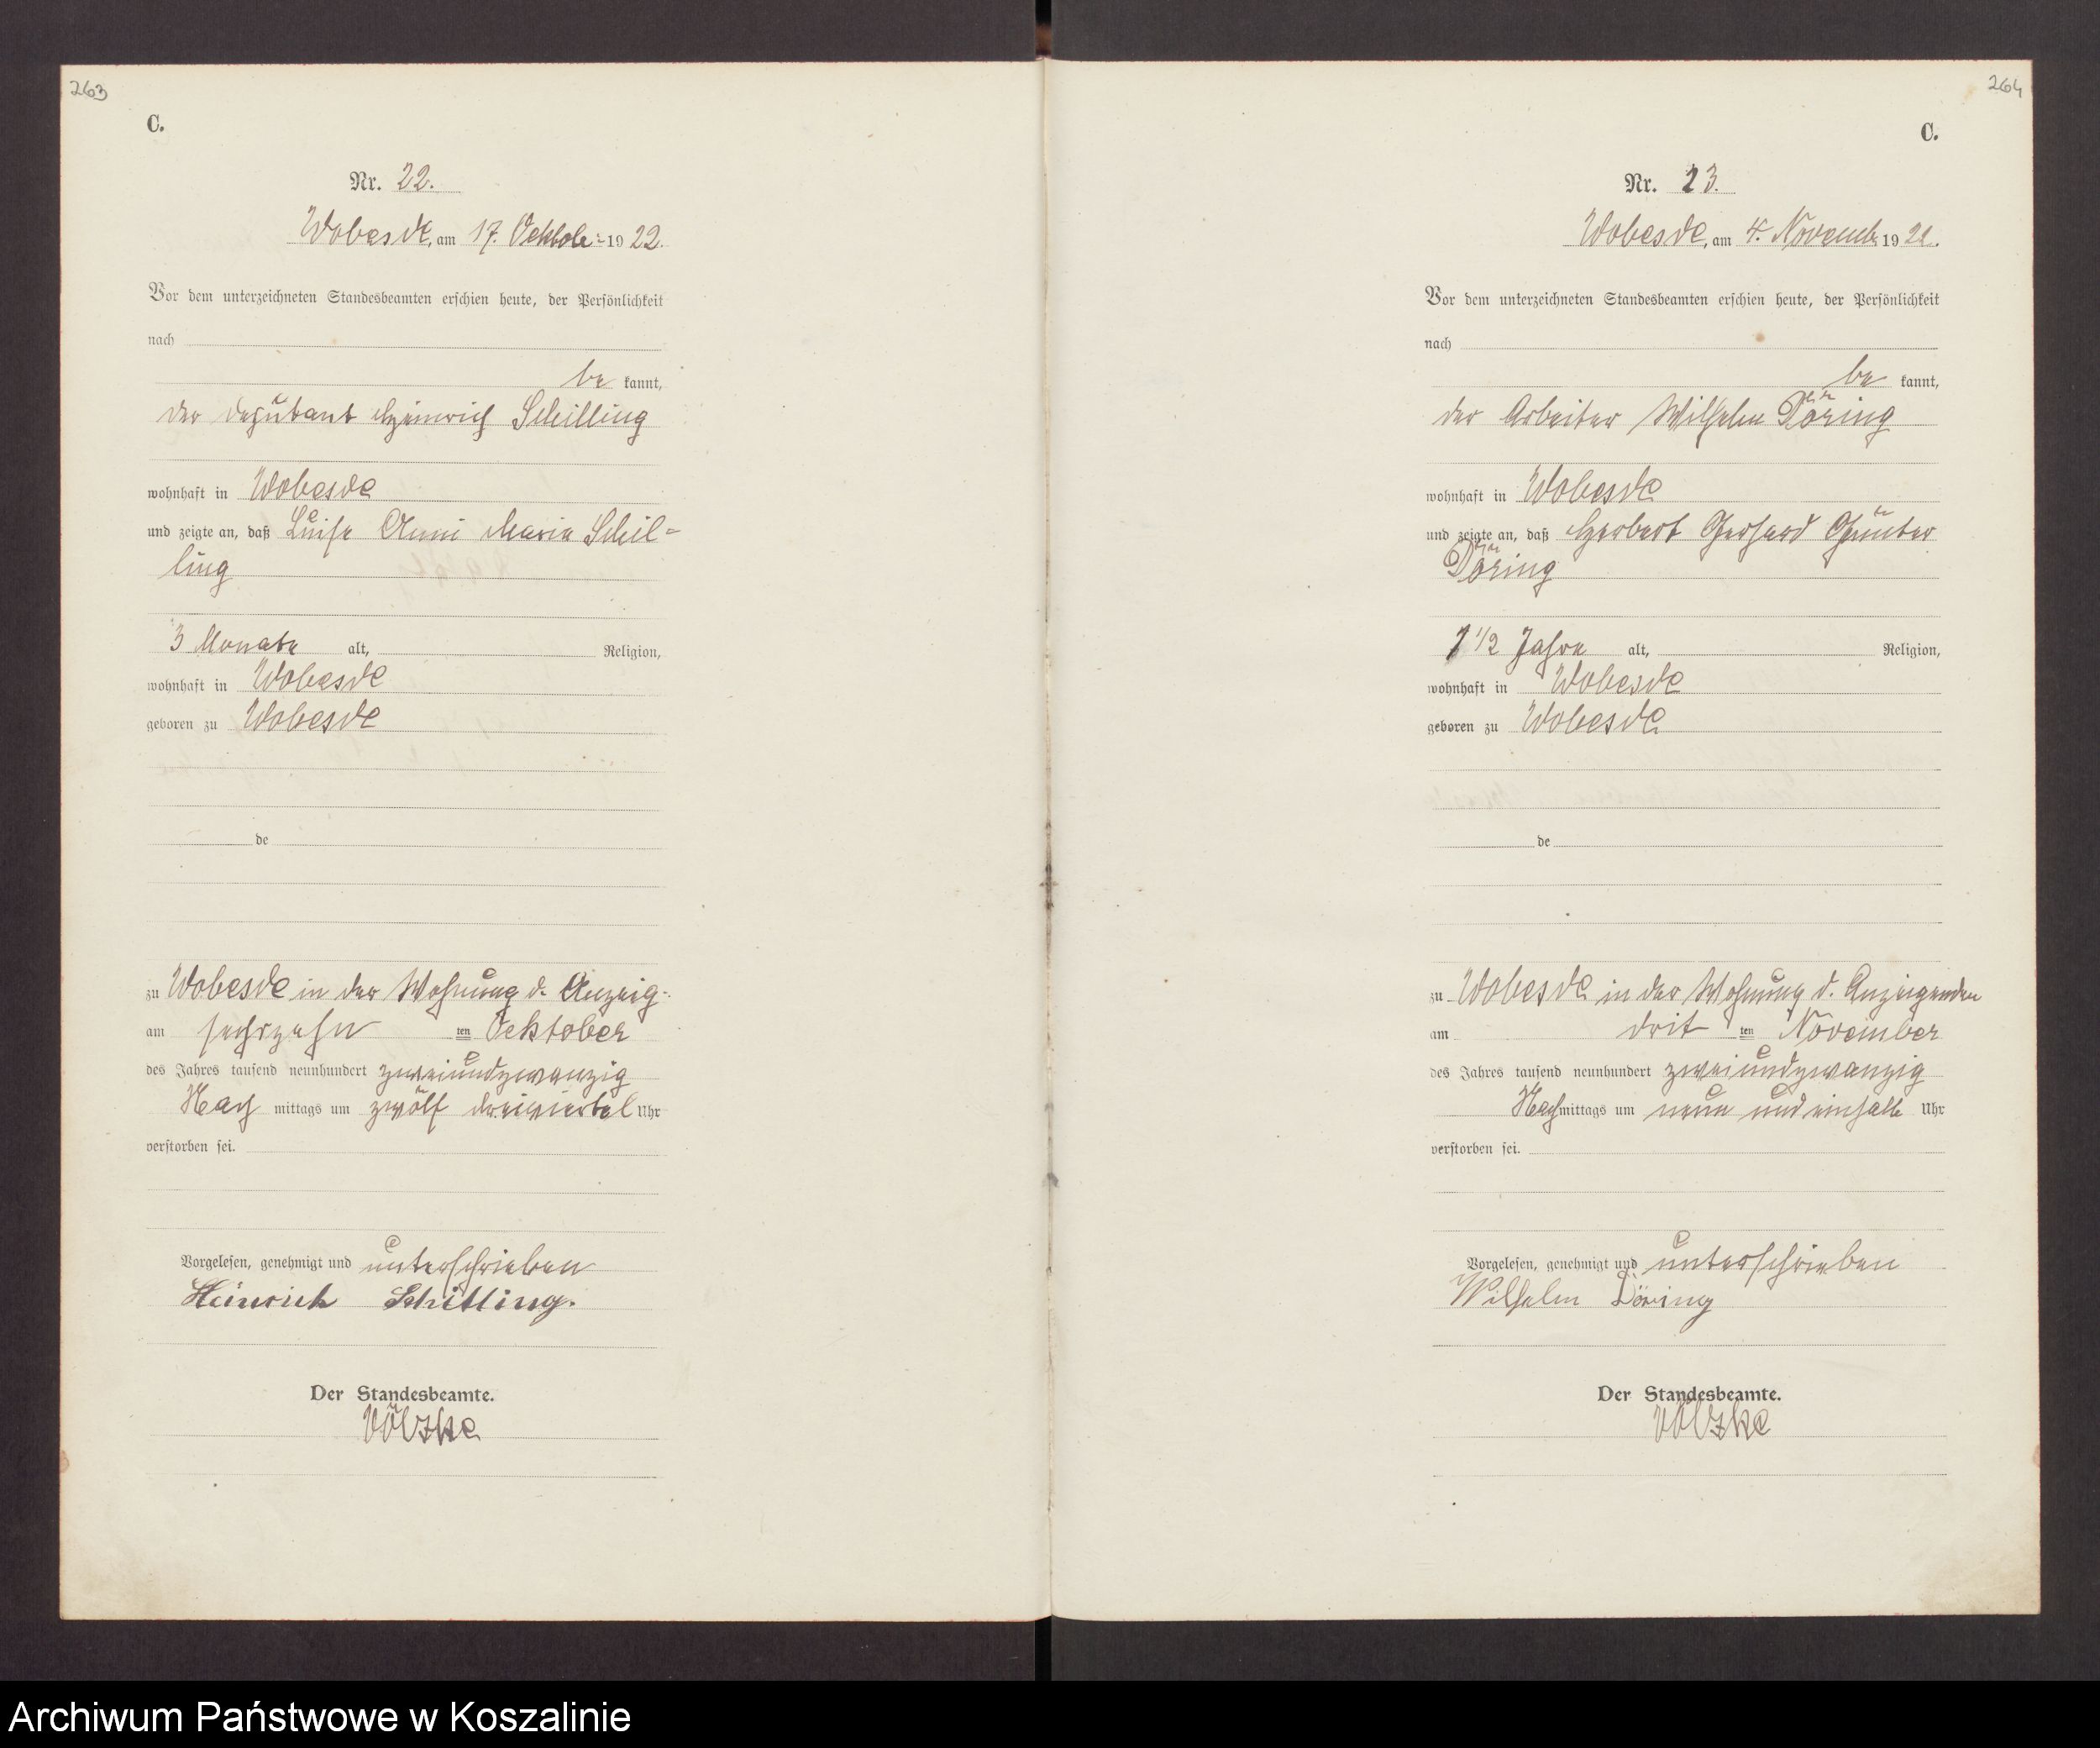 263
C.
Nr. 22.
Wobesde, am 17. Oektobe: 1922.
Vor dem unterzeichneten Standesbeamten erschien heute, der Persönlichkeit
nach
be kannt,
der Deputant Heinrich Schilling
wohnhaft in Wobesde
und zeigte an, daß Luise Anni Marie Schil=
ling
3 Monate alt, Religion,
wohnhaft in Wobesde
geboren zu Wobesde
de
zu Wobesde in der Wohnung d. Anzeig.
am sechszehn ten Oektober
des Jahres tausend neunhundert zweiundzwanzig
Nach mittags um zwölf dreiviertel Uhr
verstorben sei.
Vorgelesen, genehmigt und unterschrieben
Heinrich Schilling.
Der Standesbeamte.
Völzke
264
C.
Nr. 23.
Wobesde, am 4. Novemb. 1922.
Vor dem unterzeichneten Standesbeamten erschien heute, der Persönlichkeit
nach
be kannt,
der Arbeiter Wilhelm Döring
wohnhaft in Wobesde
und zeigte an, daß Herbert Gerhard Günter
Döring
1 1/2 Jahre alt, Religion,
wohnhaft in Wobesde
geboren zu Wobesde
de
zu Wobesde in der Wohnung d. Anzeigenden
am drit ten November
des Jahres tausend neunhundert zweiundzwanzig
Nach mittags um neun und einhalb Uhr
verstorben sei.
Vorgelesen, genehmigt und unterschrieben
Wilhelm Döring
Der Standesbeamte.
Völzke
Archiwum Państwowe w Koszalinie